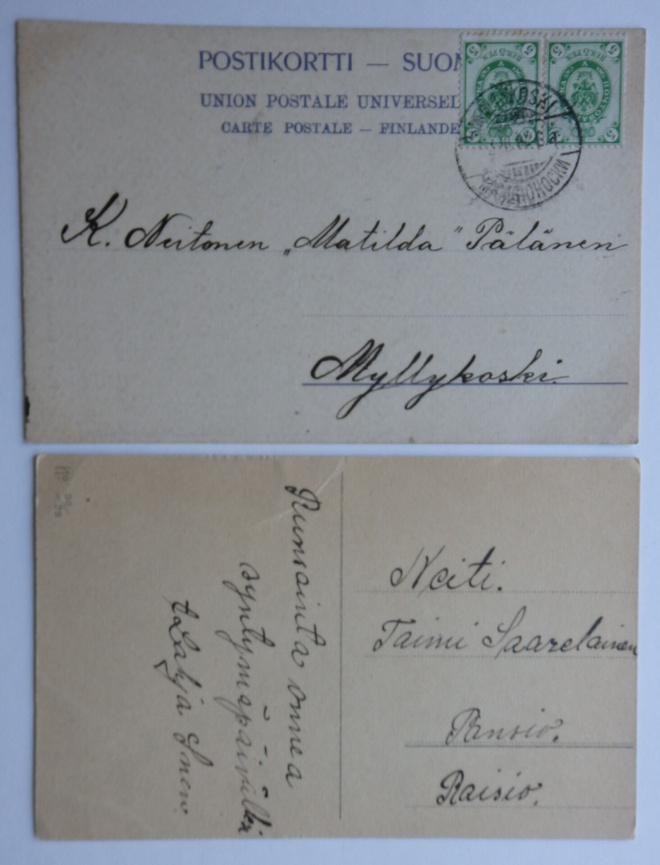 POSTIKORTTI — SUO
UNION POSTALE UNIVERSEL
CARTE POSTALE – FINLANDE
5 5
5 5
K. Neitonen „Matilda" Pälänen
Myllykoski.
Runsainta onnea
syntymäpäivillesi
t. Lahja
Neiti.
Taimi Saarelainen
Pansio.
Raisio.